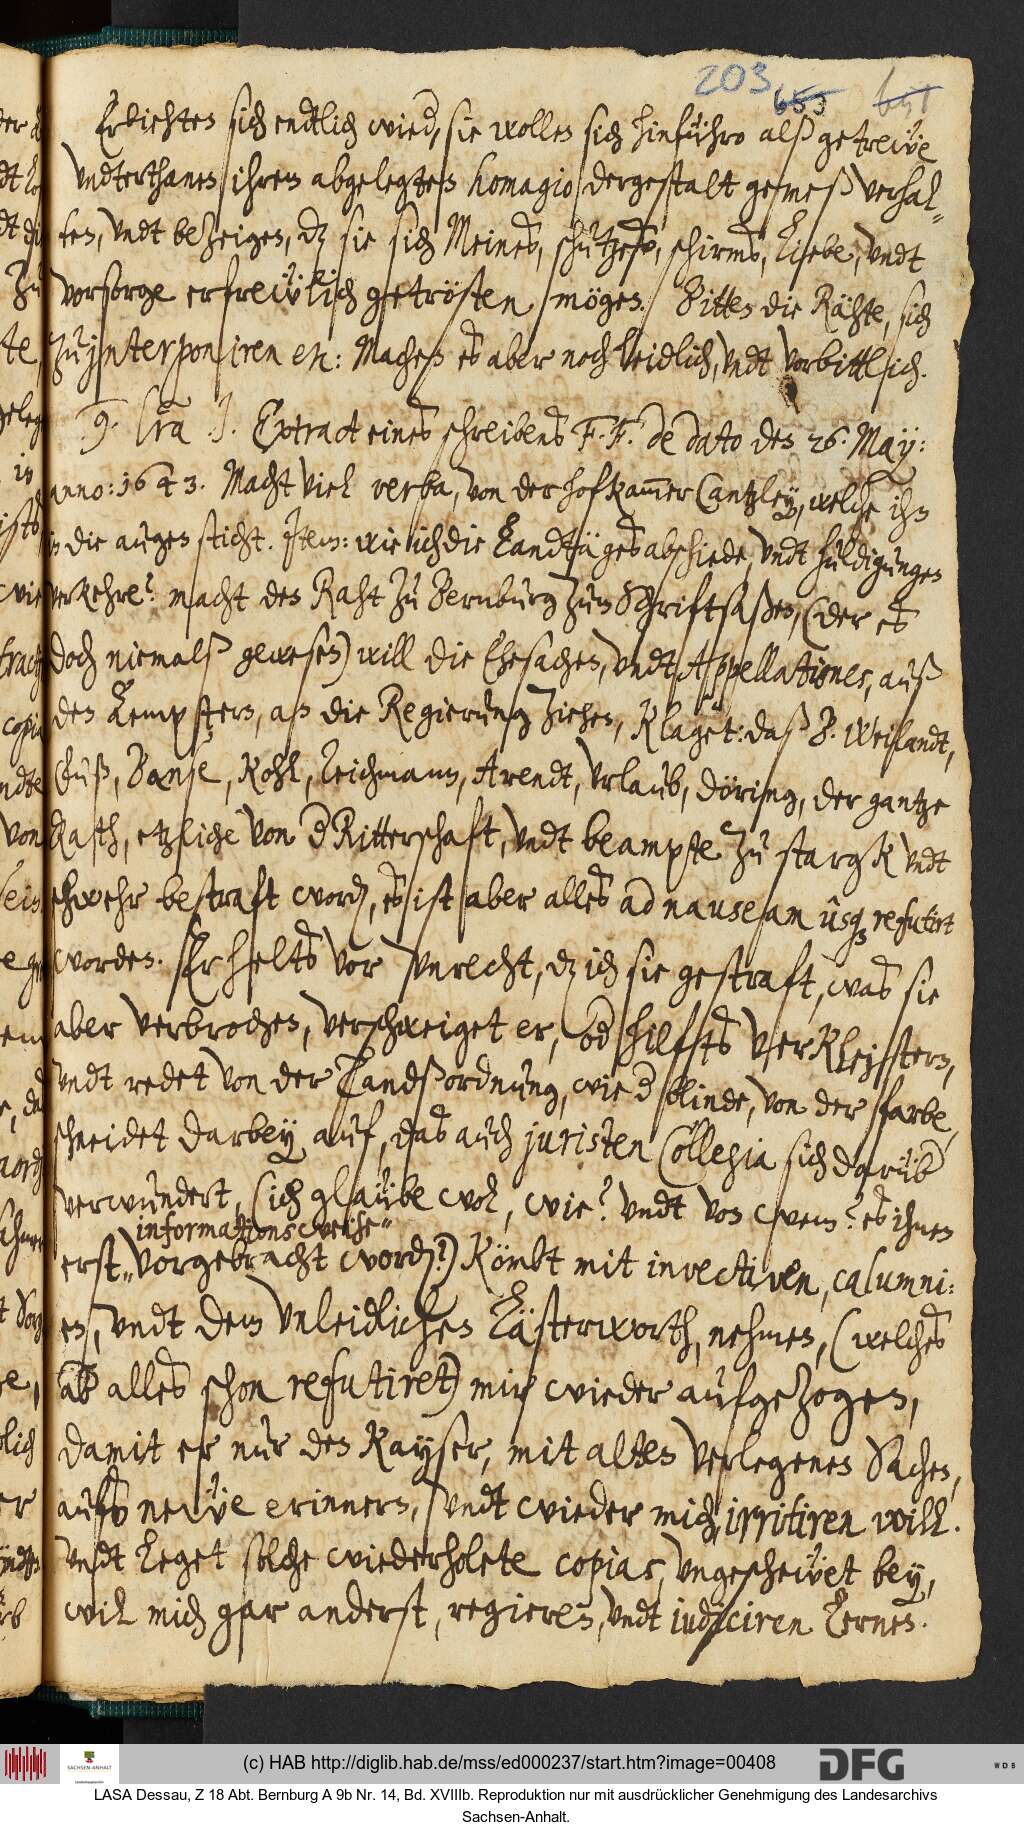 203 653 651
Erbiehten sich endtlich wied, sie wollen sich hinführo alß getreẅe
Vndterthanen ihrem abgelegten homagio dergestalt gemeß verhal„
ten, vndt bezeigen, dz sie sich Meines, schutzes, schirms, Liebe, vndt
vorsorge erfreẅlich getrösten mögen. Bitten die Rähte, sich
zu interponiren etc: Machen es aber noch leidlich, vndt vorbittlich.
9. Lra J. Extract eines schreibens F. F. de dato den 26. May:
anno: 1643. Macht viel verba, von der hofkammer Cantzley, welche ihn
in die augen sticht. Item: wie ich die Landtägesabschiede, vndt huldigungen
verkehre? macht den Raht zu Bernburg zum Schriftsaßen, (der es
doch niemalß gewesen) will die Ehesachen, vndt Appellationes, auß
den Aemptern, an die Regierung ziehen, Klaget: daß B. Weylandt,
Cuß, Banse, Kohl, Leichmann, Arendt, Vrlaub, Döring, der gantze
Rath, etzliche von d Ritterschaft, vndt beampte zu stargk vndt
schwehr bestraft word, es ist aber alles ad nauseam usq refutirt
worden. Er helts vor vnrecht, dz ich sie gestraft, was sie
aber verbrochen, verschweiget er, od hilfts verkleistern,
vndt redet von der Landßordnung, wie d blinde, von der farbe,
schneidet darbey auf, das auch juristen Collegia sich darüb
verwundert, (ich glaübe wol, wie? vndt von wem? es ihnen
informationsweise„
erst„ vorgebracht word?) Kömbt mit invectiven, calumni:
en, vndt dem vnleidlichen Lästerworth, nehmen, (welches
ab alles schon refutiret) mir wieder aufgezogen,
damit er nur den Kayser, mit alten verlegenen Sachen,
aufs neẅe erinnern, vndt wieder mich irritiren will.
vndt leget solche wiederholete copias, vngescheẅet bey,
will mich gar anderst, regieren, vndt judiciren lernen.
(c) HAB http://diglib.hab.de/mss/ed000237/start.htm?image=00408
SACHSEN-ANHALT
DFG
WDB
LASA Dessau, Z 18 Abt. Bernburg A 9b Nr. 14, Bd. XVIIIb. Reproduktion nur mit ausdrücklicher Genehmigung des Landesarchivs
Sachsen-Anhalt.